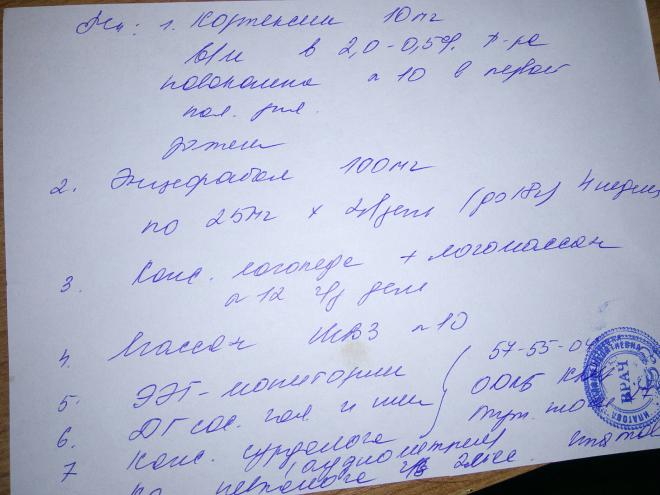 Рек: 1. Кортексин 10мг
в/м в 2,0-0,5% р-ра
новокаина n 10 в первой
пол. дня.
затем
2. Энцефабол 100мг
по 25мг x 2 р/день (до 18ч) 4 недели
3. Конс. логопеда + логомассаж
n 12 ч/з день
4. Массаж ШВЗ n 10
5. ЭЭГ-мониторинг
57-55-0
6. ДГ сос. гол и шеи
ООКБ
7 Конс. сурдолога
(аудиометрия
невролога ч/з 2 мес.
ВРАЧ